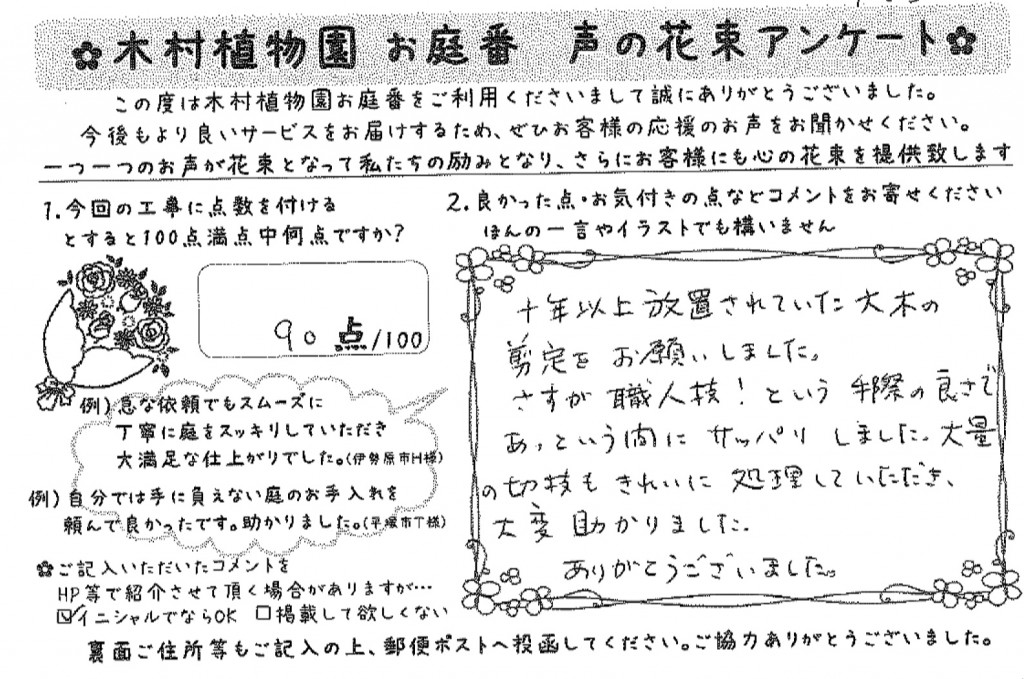 ✿木村植物園 お庭番 声の花束アンケート✿
この度は木村植物園お庭番をご利用くださいまして誠にありがとうございました。
今後もより良いサービスをお届けするため、ぜひお客様の応援のお声をお聞かせください。
一つ一つのお声が花束となって私たちの励みとなり、さらにお客様にも心の花束を提供致します
1.今回の工事に点数を付ける
とすると100点満点中何点ですか?
90点/100
例)急な依頼でもスムーズに
丁寧に庭をスッキリしていただき
大満足な仕上がりでした。(伊勢原市H様)
例)自分では手に負えない庭のお手入れを
頼んで良かったです。助かりました。(平塚市T様)
✿ご記入いただいたコメントを
HP等で紹介させて頂く場合がありますが…
☑イニシャルでならOK ☐掲載して欲しくない
2.良かった点・お気付きの点などコメントをお寄せください
ほんの一言やイラストでも構いません
十年以上放置されていた大木の
剪定をお願いしました。
さすが職人技!という手際の良さで
あっという間にサッパリしました。大量
の切枝もきれいに処理していただき、
大変助かりました。
ありがとうございました。
裏面ご住所等もご記入の上、郵便ポストへ投函してください。ご協力ありがとうございました。